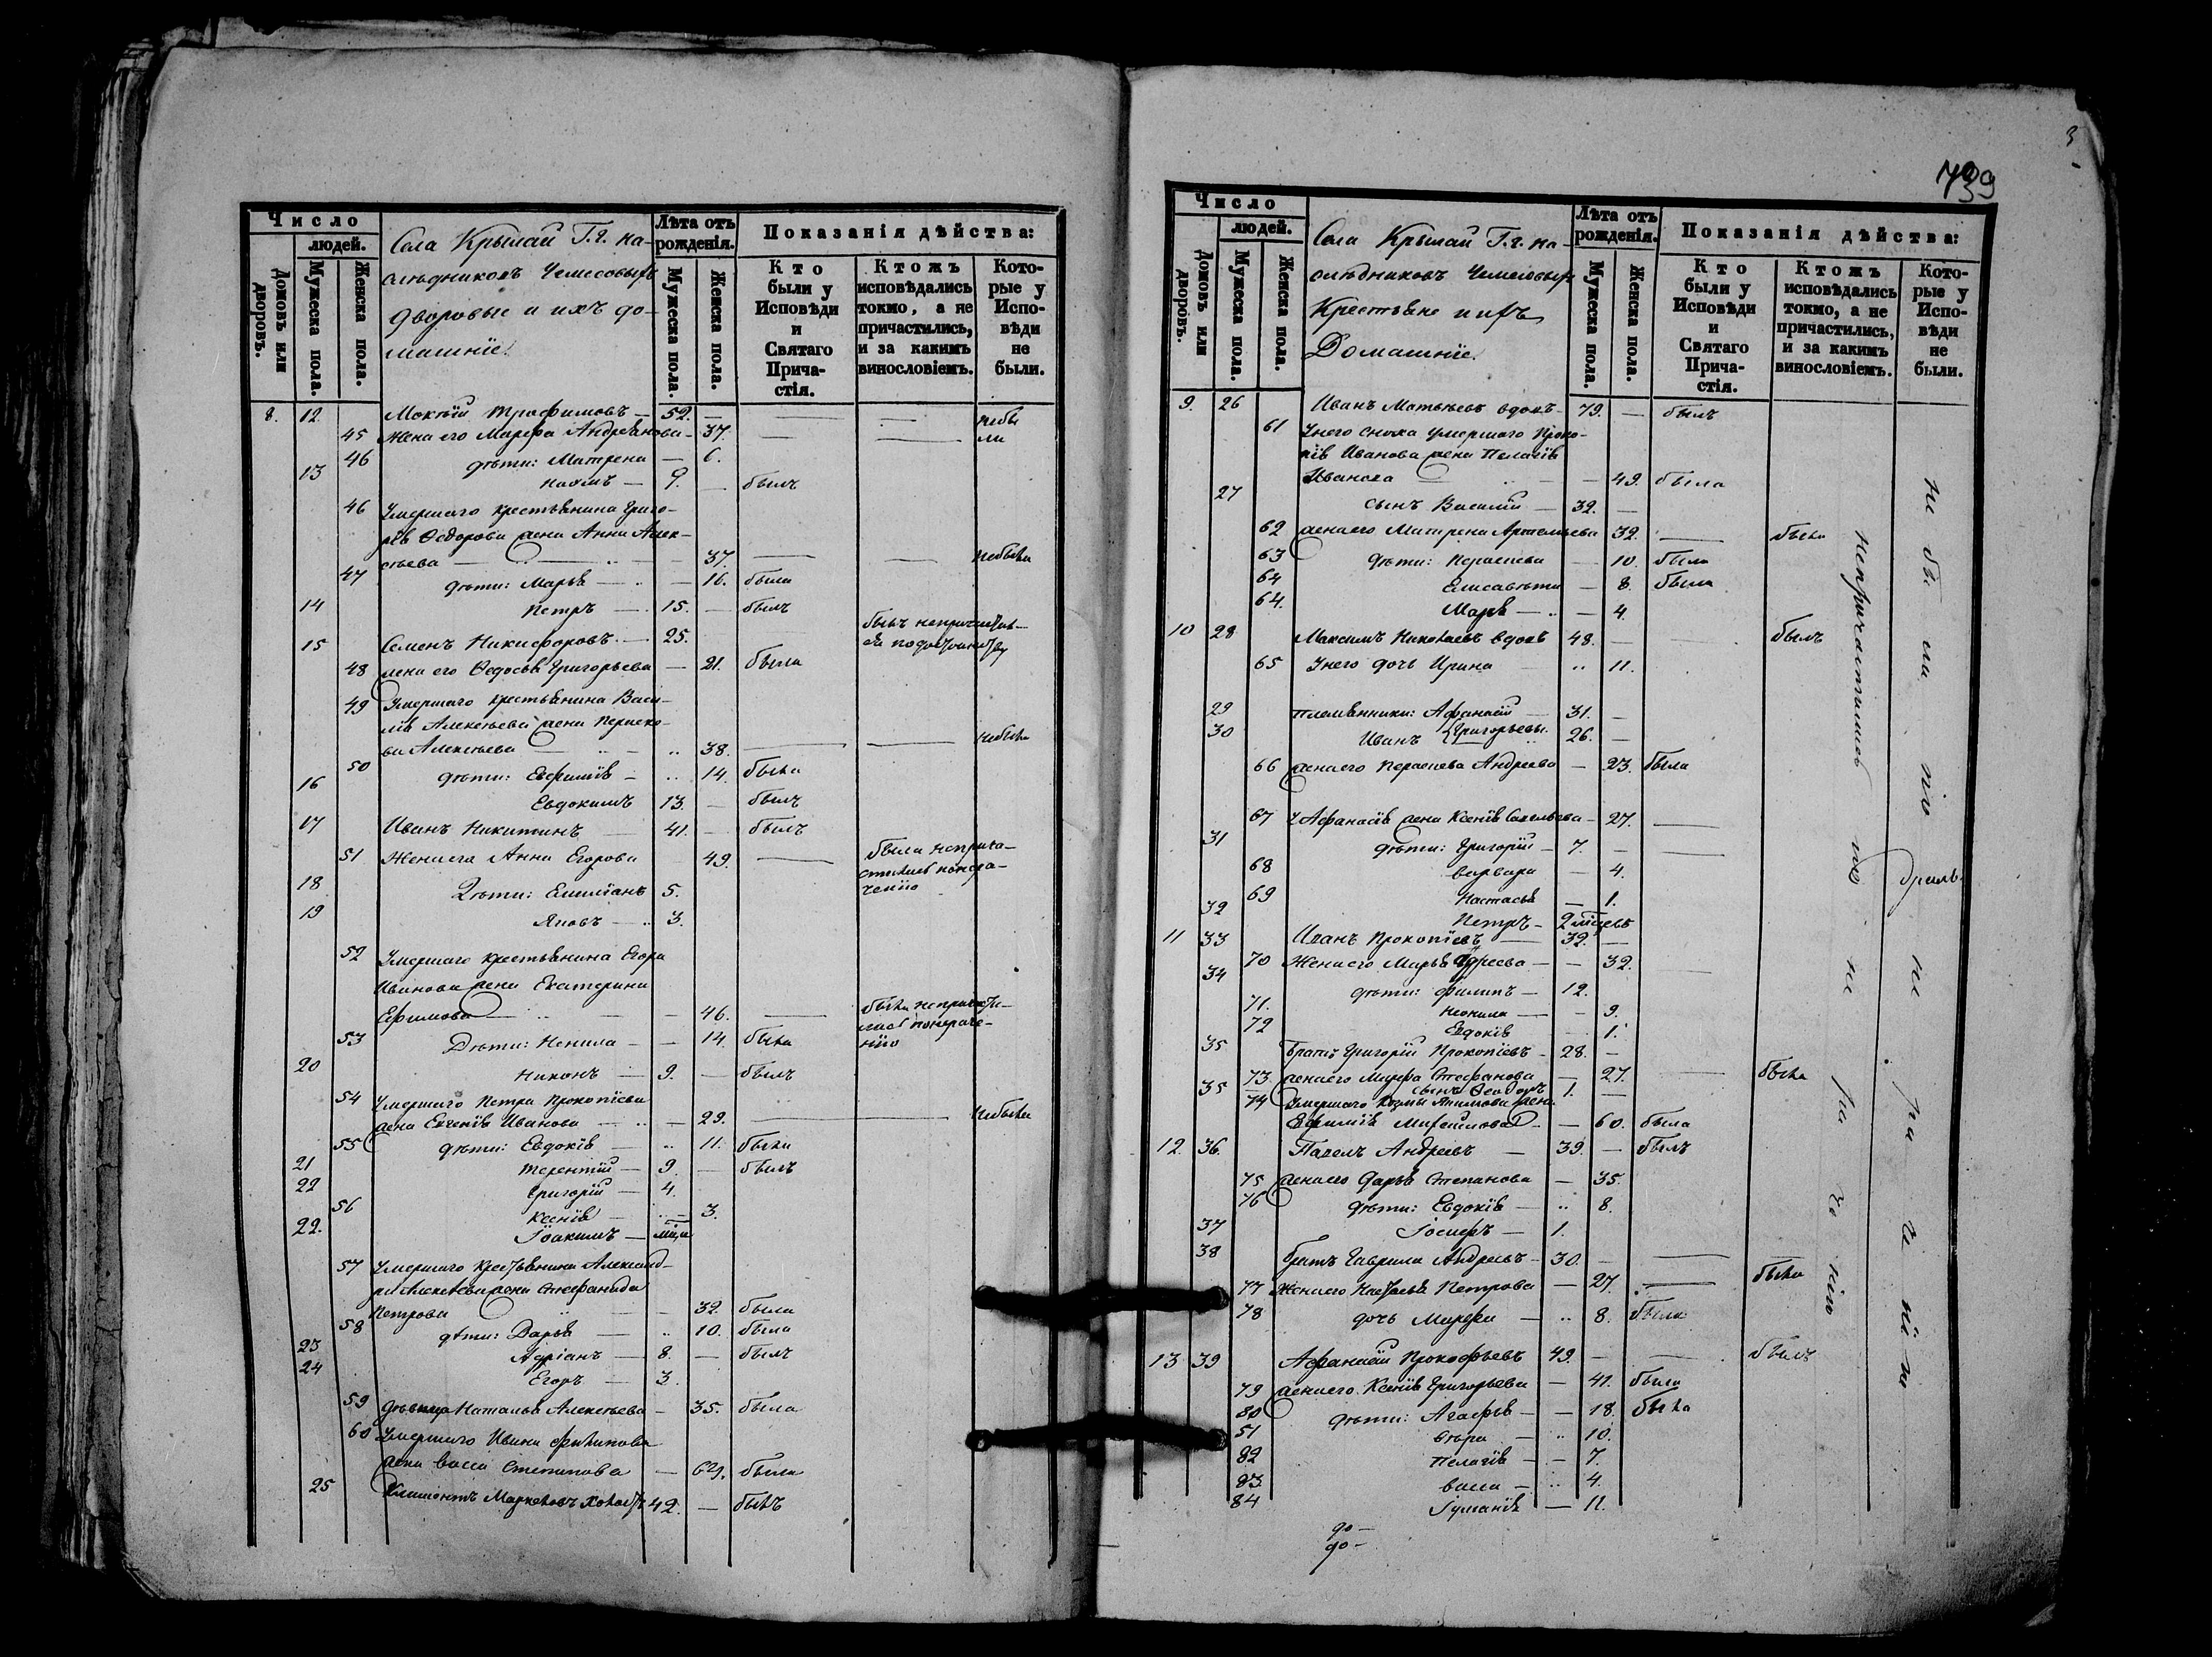 Число
людей.
Домовъ или дворовъ.
Мужеска пола.
Женска пола.
Села Крымаи Г.г. на-
слѣдниковъ Чемесовыхъ
дворовые и ихъ до-
машніе.
Лѣта отъ рожденія.
Мужеска пола.
Женска пола.
Показанія дѣйства:
Кто были у Исповѣди и Святаго Прича-стія.
Ктожъ исповѣдались токмо, а не причастились, и за какимъ винословіемъ.
Кото-рые у Испо-вѣди не были.
8. 12. Мокѣй Трофимовъ — 52. — — — небы
45 Жена его Марѳа Андреянова — 37. — — ли
46 дѣти: Матрена — 6.
13 Наумъ — 9. — былъ
46 Умершаго крестьянина Григо-
рія Ѳедорова жена Анна Алек-
сѣева — — 37. — — небыла
47 дѣти: Марья — 16. была
14 Петръ — 15. — былъ
15 Семенъ Никифоровъ — 25. былъ непричастил-
ся
48 жена его Ѳедосья Григорьева — 21. была
49 Умершаго крестьянина Васи-
лія Алексѣева жена Параско-
ва Алексѣева — 38. — — небыла
50 дѣти: Евфимія — 14. была
16 Евдокимъ 13. — былъ
17 Иванъ Никитинъ — 41. — былъ
51 Жена его Анна Егорова 49. — была неприча-
стилась понера-
ченію
18. Дѣти: Емиліанъ 5.
19 Яковъ — 3.
52 Умершаго крестьянина Егора
Иванова жена Екатерина
Ефимова — — 46. — была непричасти-
лась понераче-
нію
53 Дѣти: Ненила — 14. была
20 Никонъ — 9. — былъ
54 Умершаго Петра Прокопіева
жена Евгенія Иванова — — 29. — небыла
55 дѣти: Евдокія — 11. была
21 Терентій — 9. — былъ
22 Григорій — 4.
56 Ксенія — 3.
22. Іоакимъ —
57 Умершаго крестьянина Александ-
ра Алексѣева жена Стефанида
Петрова — 32. была
58 дѣти: Дарья — 10. была
23 Адріанъ — 8. — былъ
24 Егоръ — 3.
59 дѣвица Наталья Алексѣева — 35. была
60 Умершаго Ивана Филипова
жена Васса Степанова — была
25 Климентъ Маркеловъ холостъ 42. — былъ
3
739
Число
людей.
Домовъ или дворовъ.
Мужеска пола.
Женска пола.
Села Крымаи Г.г. на-
слѣдниковъ Чемесовыхъ
Крестьяне и ихъ
Домашніе.
Лѣта отъ рожденія.
Мужеска пола.
Женска пола.
Показанія дѣйства:
Кто были у Исповѣди и Святаго Прича-стія.
Ктожъ исповѣдались токмо, а не причастились, и за какимъ винословіемъ.
Кото-рые у Испо-вѣди не были.
9. 26 Иванъ Матвѣевъ вдовъ — 79. — былъ
61 Унего сноха умершаго Проко-
пія Иванова жена Пелагія
Иванова — 49. была
27 сынъ Василій — 32. —
62 жена его Матрена Артемьева 32. — была
63 дѣти: Параскева — 10. была
64 Елисавета — 8. была
64. Марья — 4.
10 28 Максимъ Николаевъ вдовъ 48. — былъ
65 Унего дочь Ирина 11.
29 племянники: Афанасій — 31. —
30 Иванъ Григорьевы. 26. —
66 жена его Параскева Андреева — 23. была
67 У Афанасія жена Ксенія Савельева — 27. —
31 дѣти: Григорій — 7. —
68 Варвара — 4.
69 Настасья — 1.
32 Петръ — 2 мѣсяцевъ
11 33 Иванъ Прокопіевъ — 32. —
70 Жена его Марья — 32.
34 дѣти: Филипъ — 12.
71. Неонила — 9.
72 Евдокія 1.
35 Братъ Григорій Прокопіевъ — 28. —
73 жена его Марѳа Стефанова — 27. — была
35 сынъ Ѳеодоръ 1. —
74 Умершаго Козмы жена
Евфимія — 60. была
12. 36. Павелъ Андреевъ — 39. — былъ
75 жена его Дарья Степанова — 35.
76 дѣти: Евдокія — 8.
37 Іосифъ — 1.
38 братъ Гаврила Андреевъ — 30. — —
77 Жена его Настасья Петрова — 27. — была
78 дочь Марѳа — 8. была
13 39 Афанасій Прокофьевъ 49. — былъ
79 жена его Ксенія Григорьева — 41. была
80 дѣти: Агафья — 18. была
51 Вѣра — 10.
82 Пелагія — 7.
83 Васса — 4.
84 Іуліанія — 11.
до —
до —
непричастились по нераченію
не были по нераченію